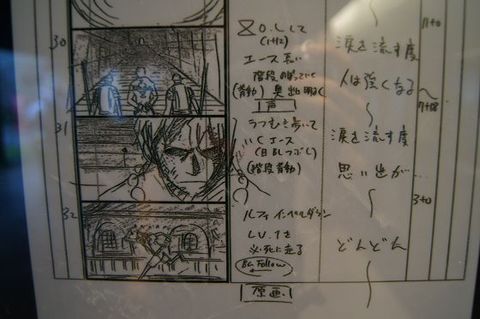 30
O.Lして
(1+12)
エース歩い
階段のぼっていく
(背動) 奥出口明るく
声
31
うつむき歩いて
いくエース
(目BLつぶし)
(階段背動)
32
ルフィインペルダウン
LV.1を
必死に走る
BG Follow
原画
涙を流す度
人は強くなる
涙を流す度
思い出が…
どんどん
3+0